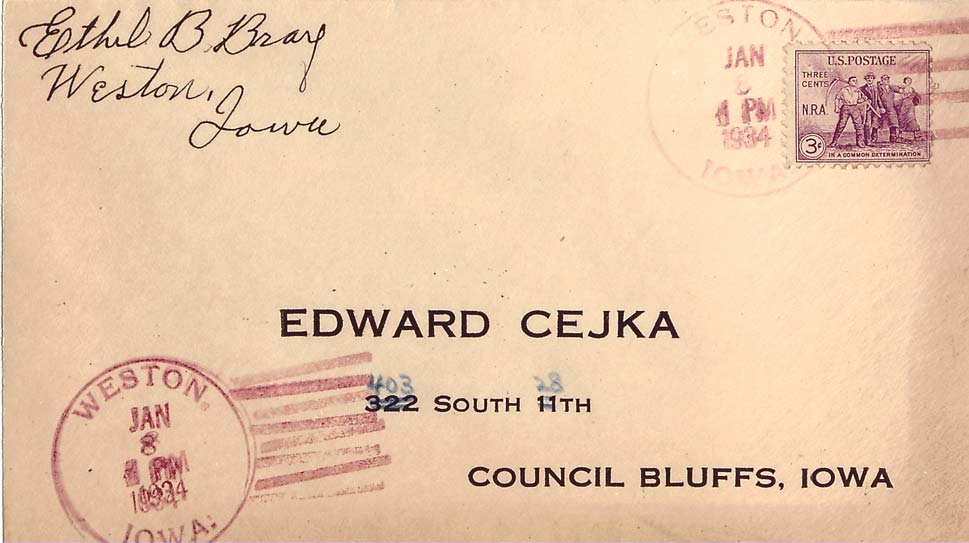 Ethel B Bray
Weston,
Iowa
WESTON
JAN
8
1 PM
1934
IOWA
U.S. POSTAGE
THREE
CENTS
N.R.A.
3¢
IN A COMMON DETERMINATION
EDWARD CEJKA
403 28
322 SOUTH 11TH
COUNCIL BLUFFS, IOWA
WESTON
JAN
8
1 PM
1934
IOWA